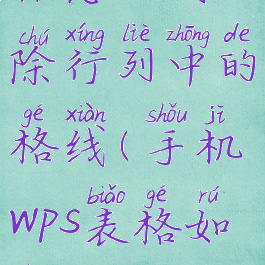 chú xíng liè zhōng de
除行列中的
gé xiàn shǒu jī
格线(手机
biǎo gé rú
wps表格如